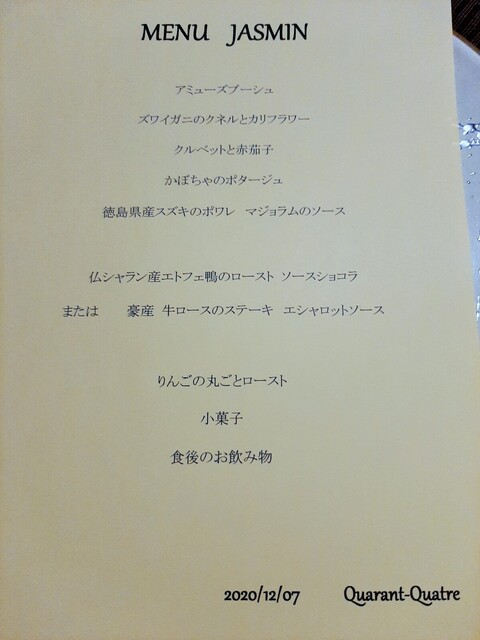 MENU JASMIN
アミューズブーシュ
ズワイガニのクネルとカリフラワー
クルベットと赤茄子
かぼちゃのポタージュ
徳島県産スズキのポワレ マジョラムのソース
仏シャラン産エトフェ鴨のロースト ソースショコラ
または 豪産 牛ロースのステーキ エシャロットソース
りんごの丸ごとロースト
小菓子
食後のお飲み物
2020/12/07 Quarant-Quatre